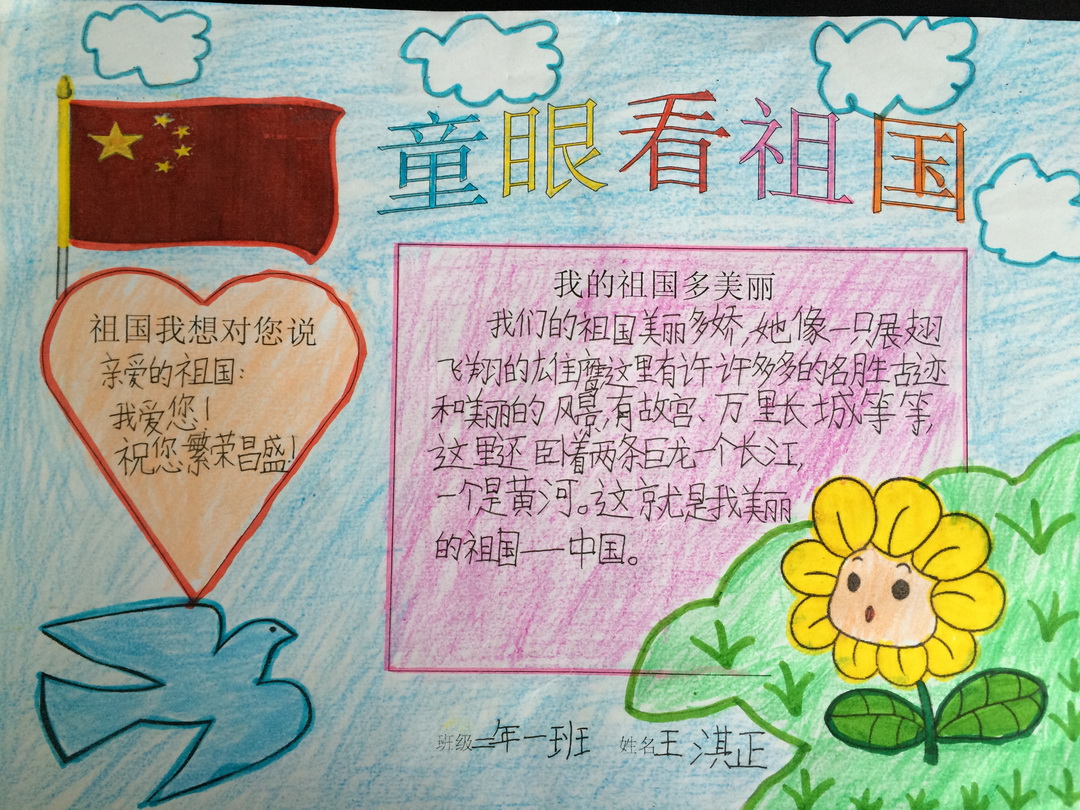 童眼看祖国
祖国我想对您说
亲爱的祖国：
我爱您！
祝您繁荣昌盛！
我的祖国多美丽
我们的祖国美丽多娇，她像一只展翅
飞翔的雄鹰这里有许许多多的名胜古迹
和美丽的风景，有故宫、万里长城等等，
这里还卧着两条巨龙一个长江，
一个是黄河。这就是我美丽
的祖国——中国。
班级二年一班 姓名王淇正